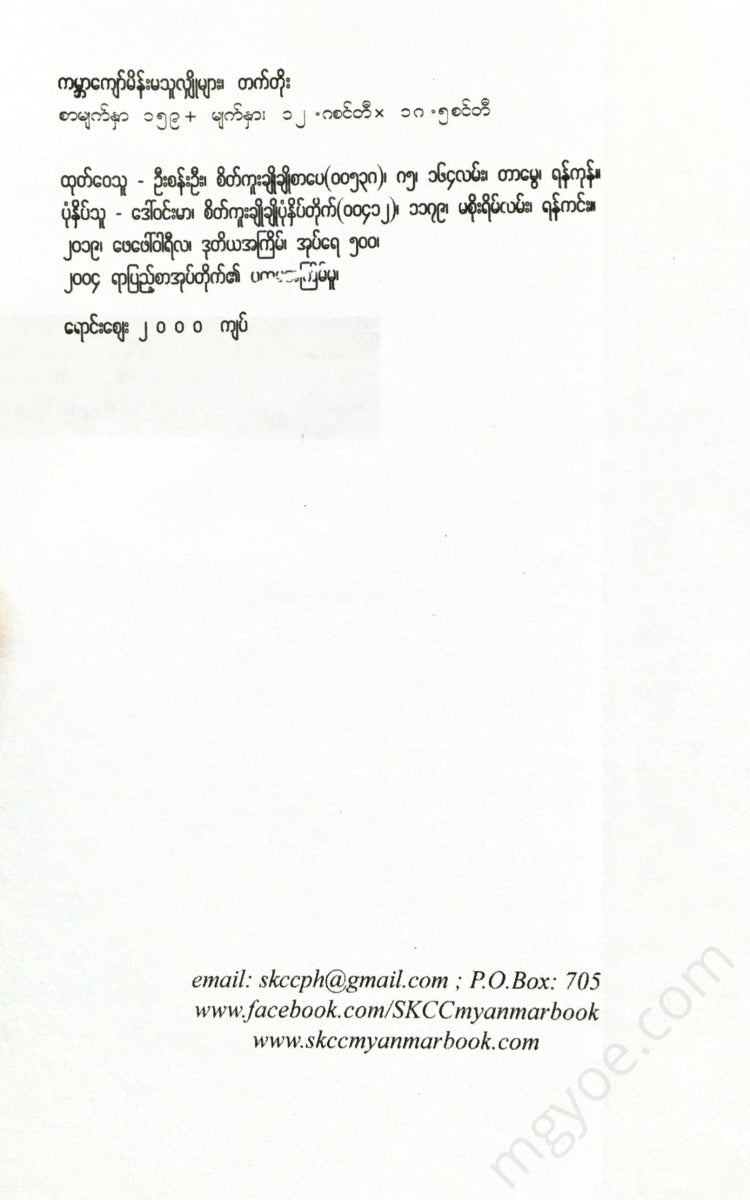 ကမ္ဘာကျော်မိန်းမသူလျှိုများ၊ တက်တိုး
စာမျက်နှာ ၁၅၉ + မျက်နှာ၊ ၁၂ .၈စင်တီ× ၁၈ .၅စင်တီ
ထုတ်ဝေသူ - ဦးစန်းဦး၊ စိတ်ကူးချိုချိုစာပေ(၀၀၅၃၈)၊ ၈၅၊ ၁၆၄လမ်း၊ တာမွေ၊ ရန်ကုန်။
ပုံနှိပ်သူ - ဒေါ်ဝင်းမာ၊ စိတ်ကူးချိုချိုပုံနှိပ်တိုက်(၀၀၄၁၂)၊ ၁၁၇၉၊ မစိုးရိမ်လမ်း၊ ရန်ကင်း။
၂၀၁၉၊ ဖေဖေါ်ဝါရီလ၊ ဒုတိယအကြိမ်၊ အုပ်ရေ ၅၀၀၊
၂၀၀၄ ရာပြည့်စာအုပ်တိုက်၏
ရောင်းဈေး ၂ ၀ ၀ ၀ ကျပ်
email: skccph@gmail.com ; P.O.Box: 705
www.facebook.com/SKCCmyanmarbook
www.skccmyanmarbook.com
mgyoe.com